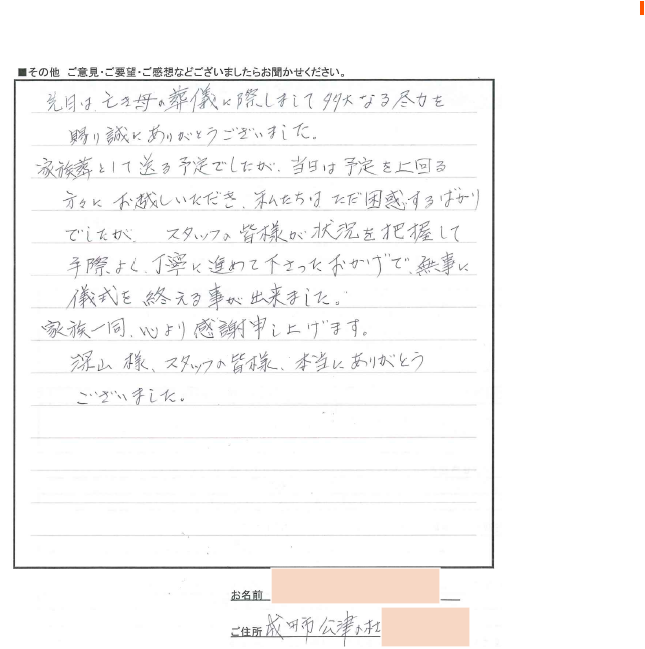 ■その他 ご意見・ご要望・ご感想などございましたらお聞かせください。
先日は、亡き母の葬儀に際しまして多大なる尽力を
賜り誠にありがとうございました。
家族葬として送る予定でしたが、当日は予定を上回る
方々にお越しいただき、私たちはただ困惑するばかり
でしたが、スタッフの皆様が状況を把握して
手際よく、丁寧に進めて下さったおかげで、無事に
儀式を終える事が出来ました。
家族一同、心より感謝申し上げます。
深山様、スタッフの皆様、本当にありがとう
ございました。
お名前
ご住所 成田市公津の杜